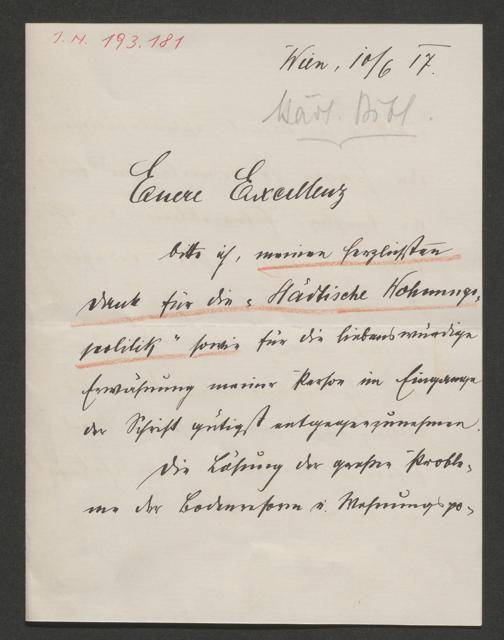 I.N. 193.181
Wien, 10/6 17.
Städt. Bibl.
Euere Exzellenz
bitte ich, meinen herzlichsten
Dank für die „Städtische Wohnungs-
politik“ sowie für die liebenswürdige
Erwähnung meiner Person im Eingange
der Schrift gütigst entgegenzunehmen.
Die Lösung der großen Proble-
me der Bodenreform u. Wohnungspo-